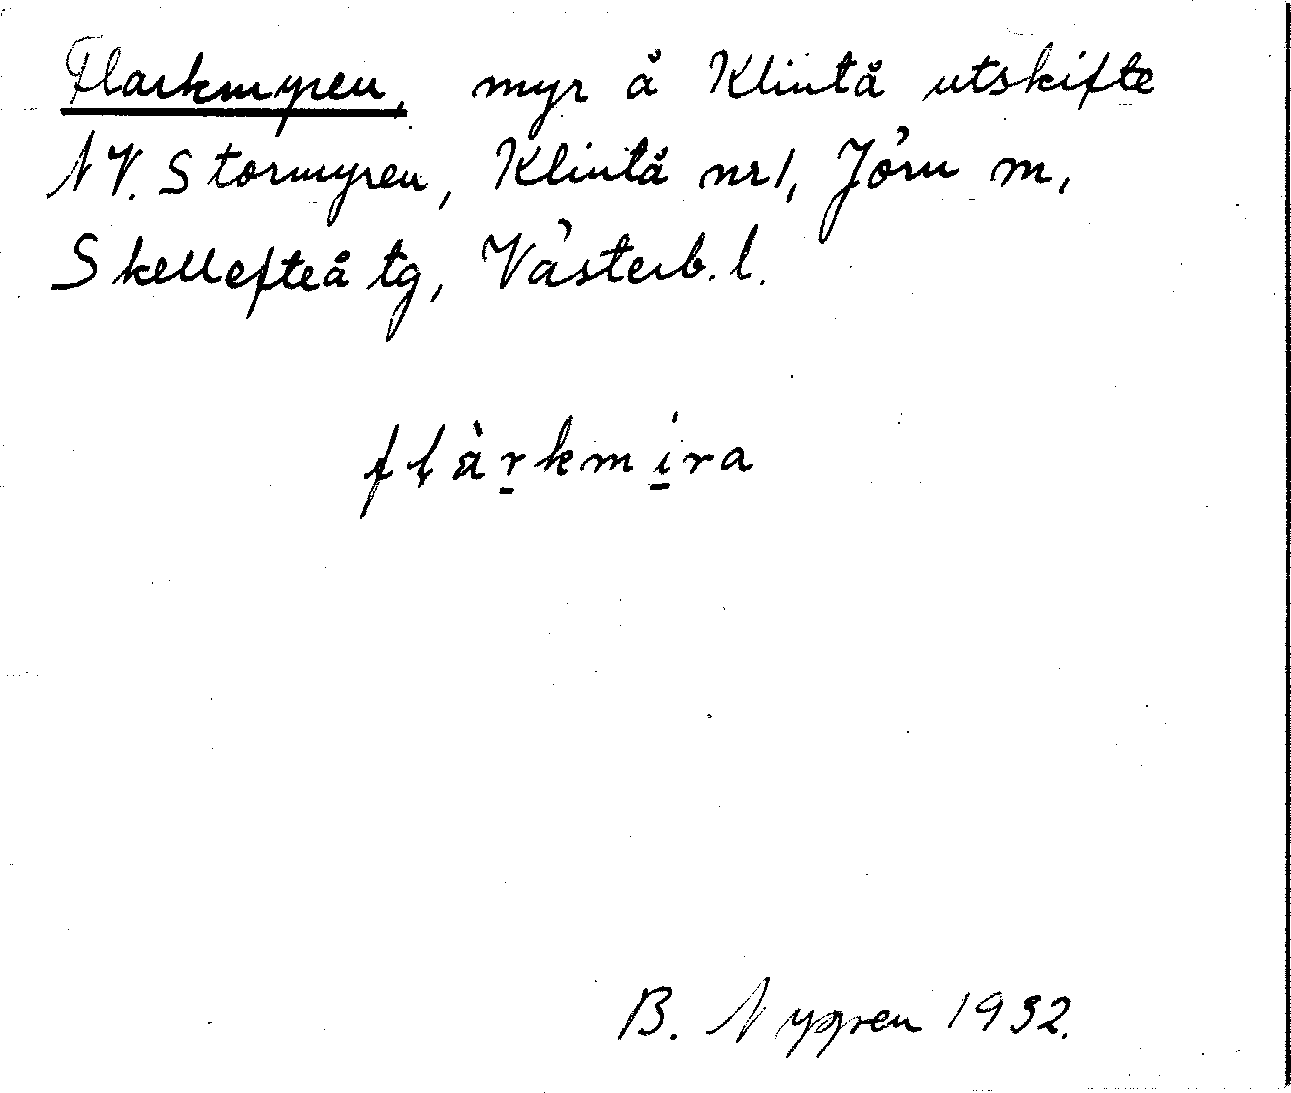 Flarkmyren, myr å Klintå utskifte
NV. Stormyren, Klintå nr 1, Jörn m,
Skellefteå tg, Västerb. l.
flàr̲kmí̲ra
B. Nygren 1932.